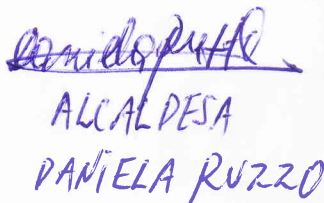 ALCALDESA
DANIELA RUZZO